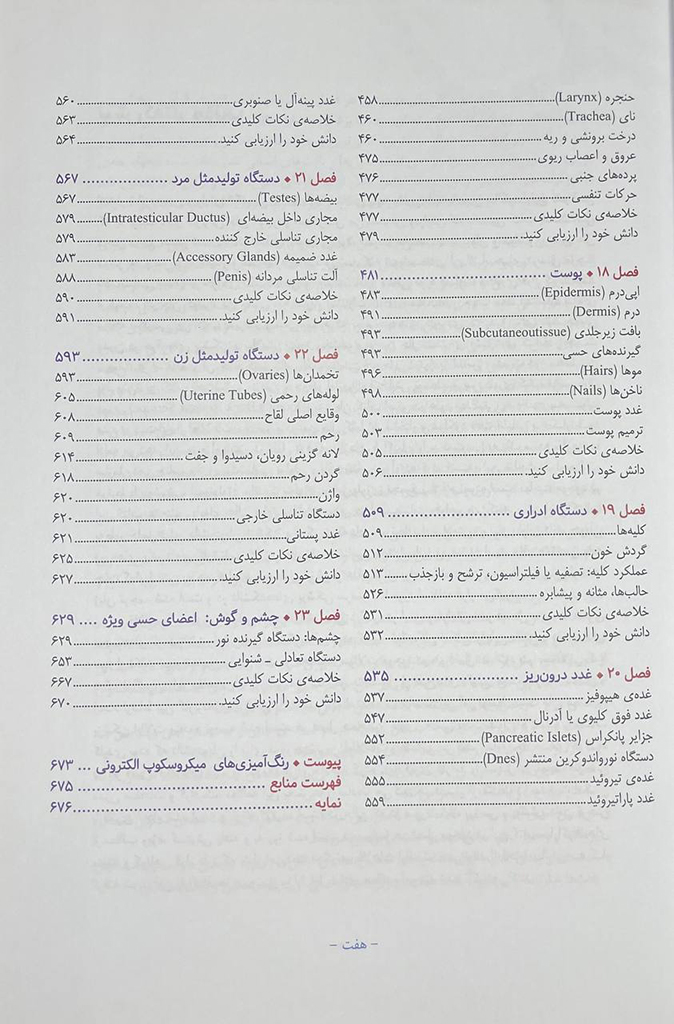 حنجره (Larynx)..........۴۵۸
نای (Trachea)..........۴۶۰
درخت برونشی و ریه..........۴۶۰
عروق و اعصاب ریوی..........۴۷۵
پرده‌های جنبی..........۴۷۶
حرکات تنفسی..........۴۷۷
خلاصه‌ی نکات کلیدی..........۴۷۷
دانش خود را ارزیابی کنید..........۴۷۹
فصل ۱۸ • پوست..........۴۸۱
اپی‌درم (Epidermis)..........۴۸۳
درم (Dermis)..........۴۹۱
بافت زیرجلدی (Subcutaneoutissue)..........۴۹۳
گیرنده‌های حسی..........۴۹۳
موها (Hairs)..........۴۹۶
ناخن‌ها (Nails)..........۴۹۸
غدد پوست..........۵۰۰
ترمیم پوست..........۵۰۳
خلاصه‌ی نکات کلیدی..........۵۰۵
دانش خود را ارزیابی کنید..........۵۰۶
فصل ۱۹ • دستگاه ادراری..........۵۰۹
کلیه‌ها..........۵۰۹
گردش خون..........۵۱۲
عملکرد کلیه: تصفیه یا فیلتراسیون، ترشح و بازجذب..........۵۱۳
حالب‌ها، مثانه و پیشابره..........۵۲۶
خلاصه‌ی نکات کلیدی..........۵۳۱
دانش خود را ارزیابی کنید..........۵۳۲
فصل ۲۰ • غدد درون‌ریز..........۵۳۵
غده‌ی هیپوفیز..........۵۳۷
غدد فوق کلیوی یا آدرنال..........۵۴۷
جزایر پانکراس (Pancreatic Islets)..........۵۵۲
دستگاه نورواندوکرین منتشر (Dnes)..........۵۵۴
غده‌ی تیروئید..........۵۵۵
غدد پاراتیروئید..........۵۵۹
غدد پینه‌آل یا صنوبری..........۵۶۰
خلاصه‌ی نکات کلیدی..........۵۶۳
دانش خود را ارزیابی کنید..........۵۶۴
فصل ۲۱ • دستگاه تولیدمثل مرد..........۵۶۷
بیضه‌ها (Testes)..........۵۶۷
مجاری داخل بیضه‌ای (Intratesticular Ductus)..........۵۷۹
مجاری تناسلی خارج کننده..........۵۷۹
غدد ضمیمه (Accessory Glands)..........۵۸۳
آلت تناسلی مردانه (Penis)..........۵۸۸
خلاصه‌ی نکات کلیدی..........۵۹۰
دانش خود را ارزیابی کنید..........۵۹۱
فصل ۲۲ • دستگاه تولیدمثل زن..........۵۹۳
تخمدان‌ها (Ovaries)..........۵۹۳
لوله‌های رحمی (Uterine Tubes)..........۶۰۵
وقایع اصلی لقاح..........۶۰۸
رحم..........۶۰۹
لانه گزینی رویان، دسیدوا و جفت..........۶۱۴
گردن رحم..........۶۱۸
واژن..........۶۲۰
دستگاه تناسلی خارجی..........۶۲۰
غدد پستانی..........۶۲۱
خلاصه‌ی نکات کلیدی..........۶۲۵
دانش خود را ارزیابی کنید..........۶۲۷
فصل ۲۳ • چشم و گوش: اعضای حسی ویژه....۶۲۹
چشم‌ها: دستگاه گیرنده نور..........۶۲۹
دستگاه تعادلی ـ شنوایی..........۶۵۳
خلاصه‌ی نکات کلیدی..........۶۶۷
دانش خود را ارزیابی کنید..........۶۷۰
پیوست • رنگ‌آمیزی‌های میکروسکوپ الکترونی...۶۷۳
فهرست منابع..........۶۷۵
نمایه..........۶۷۶
- هفت -